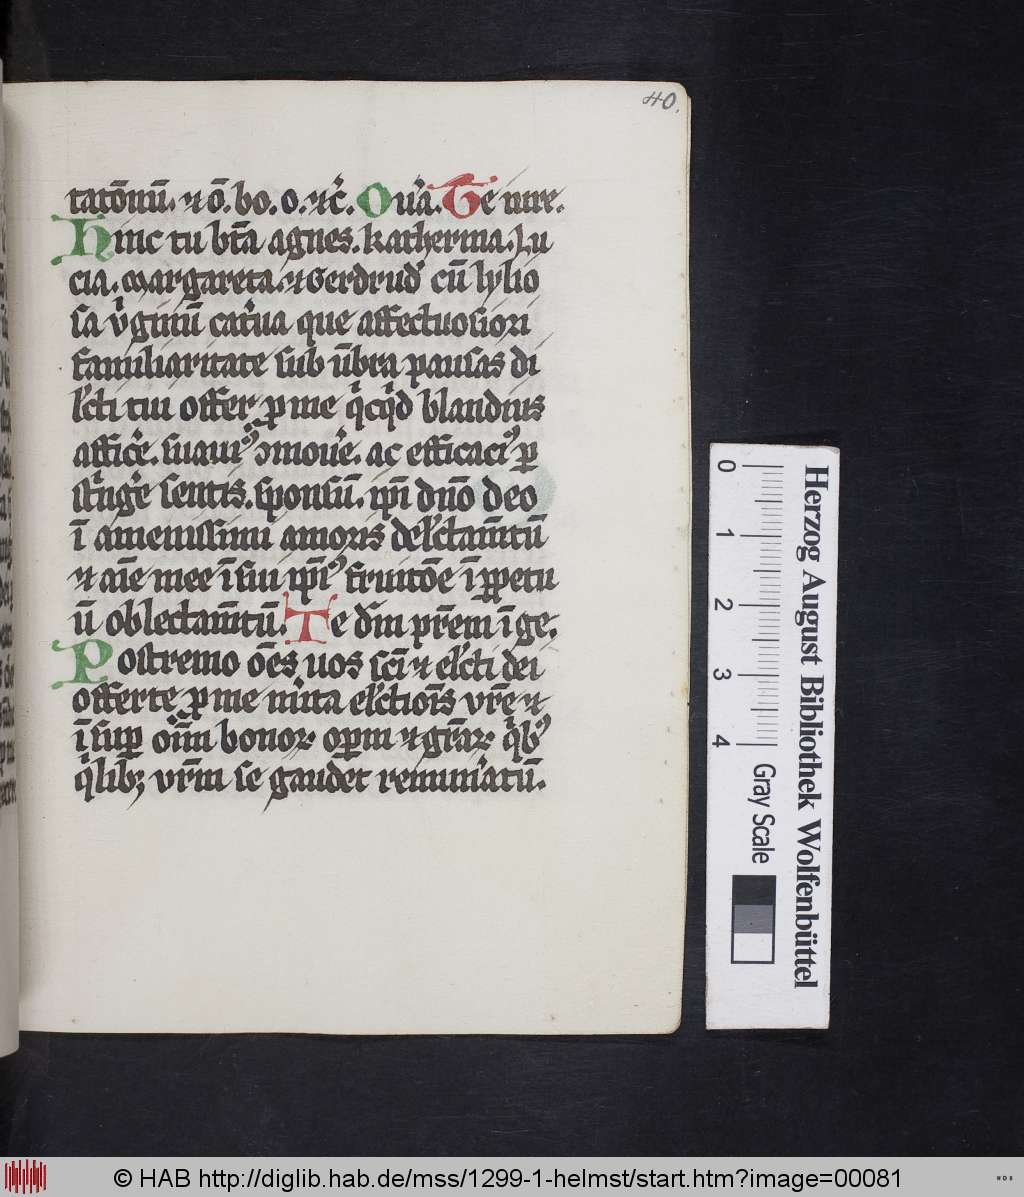 40.
tatōnū. ⁊ ō. bo. o. ⁊ c̄. Ou'a. Te nire.
Hinc tu bt̄a agnes. katherina. Lu
cia. margareta. ⁊ Gerdrud' cū lylio
sa v'ginū cat'ua que affectuosiori
familiaritate sub ūbra pausas di
l'cti tui offer ꝓ me q'cq'd blandius
affic'e. suaui⁹ ꝯmou'e. ac efficaci⁹ ꝑ
st'nge' sentis. sponsū. ip̄i dn̄o deo
ī amenissimi amoris del'ctam̄tū
⁊ aīe mee ī sui ip̄i⁹ fruitōe ī ꝑpetu
ū oblectam̄tū. Te dīn pr̄em ī ge.
Postremo ōēs uos sc̄i ⁊ el'cti dei
offerte ꝓ me m'ita el'ctiōīs vr̄e ⁊
ī suꝑ oīm̄ bonoꝝ oꝑm ⁊ gr̄aꝝ q'b⁹
q'libꝫ vr̄m se gaudet remun'atū.
0 1 2 3 4
Gray Scale
Herzog August Bibliothek Wolfenbüttel
© HAB http://diglib.hab.de/mss/1299-1-helmst/start.htm?image=00081